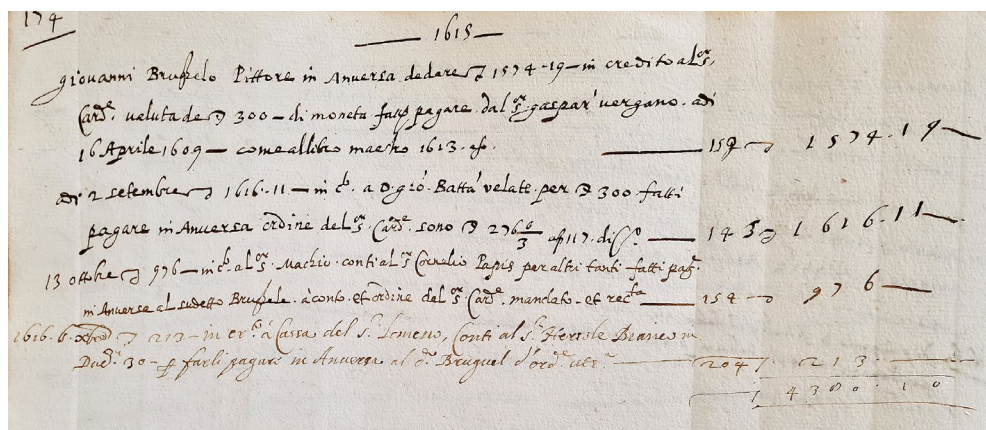 174
1615
Giovanni Brusselo Pittore in Anversa de dare 1574-19- in credito al S.or
Card.e valuta de 300 - di moneta pagare dal S.or gaspar vergano. adi
16 Aprile 1609 - come al libro maestro 1613. 152 1574.19
adi 2 setembre 1616.11 - in c.o a D. gio. Batta velate. per 300 fatti
pagare in Anversa ordine del S.or Card.e sono 276 143 1616.11
13 ottbre 976 - in c.o al S.or Machio conti al S.or Cornelio Papis per altri tanti fatti pag.
in Anversa al sudetto Brussele. à conto. et ordine del S.or Card.e mandato. et rec.ta 154 976
1616. 6. 213 - in cr.o à Cassa del S.r Lomeno, Conti al S.r Hercole Bianco in
Duc.i 30 - p farli pagare in Anversa al Bruguel d'ord.e 204 213
4380.10